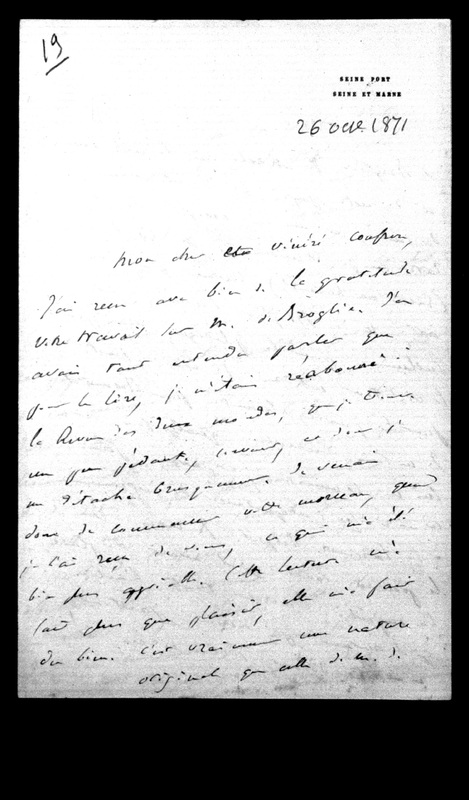 19
SEINE PORT
SEINE ET MARNE
26 oct. 1871
Mon cher et vénéré confrère,
J'ai reçu avec bien de la gratitude
votre travail sur M. de Broglie. J'en
avais tant entendu parler que
pour le lire, je m'étais réabonné à
la Revue des deux mondes, que je trouve
un peu pédante, et dont je
me détache brusquement. Je venais
donc de commencer votre morceau, quand
je l'ai reçu de vous, ce qui m'a été
bien plus agréable. Cette lecture m'a
fait plus que plaisir, elle m'a fait
du bien. C'est vraiment une nature
originale que celle de M. de